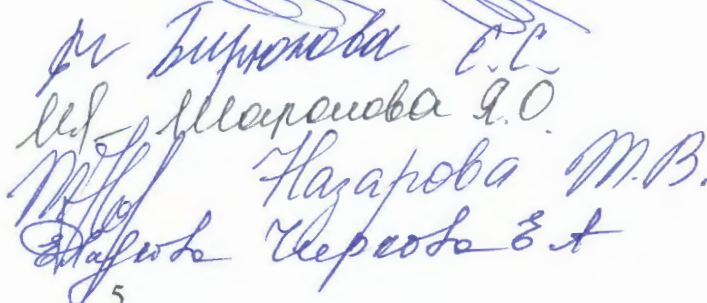 Бирюкова С.С.
Шаронова Я.О.
Назарова Т.В.
Чиркова Е А
5